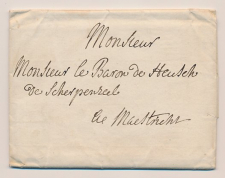 Monsieur
Monsieur le Baron de Heusch
de Scherpenzeel
de Maestricht